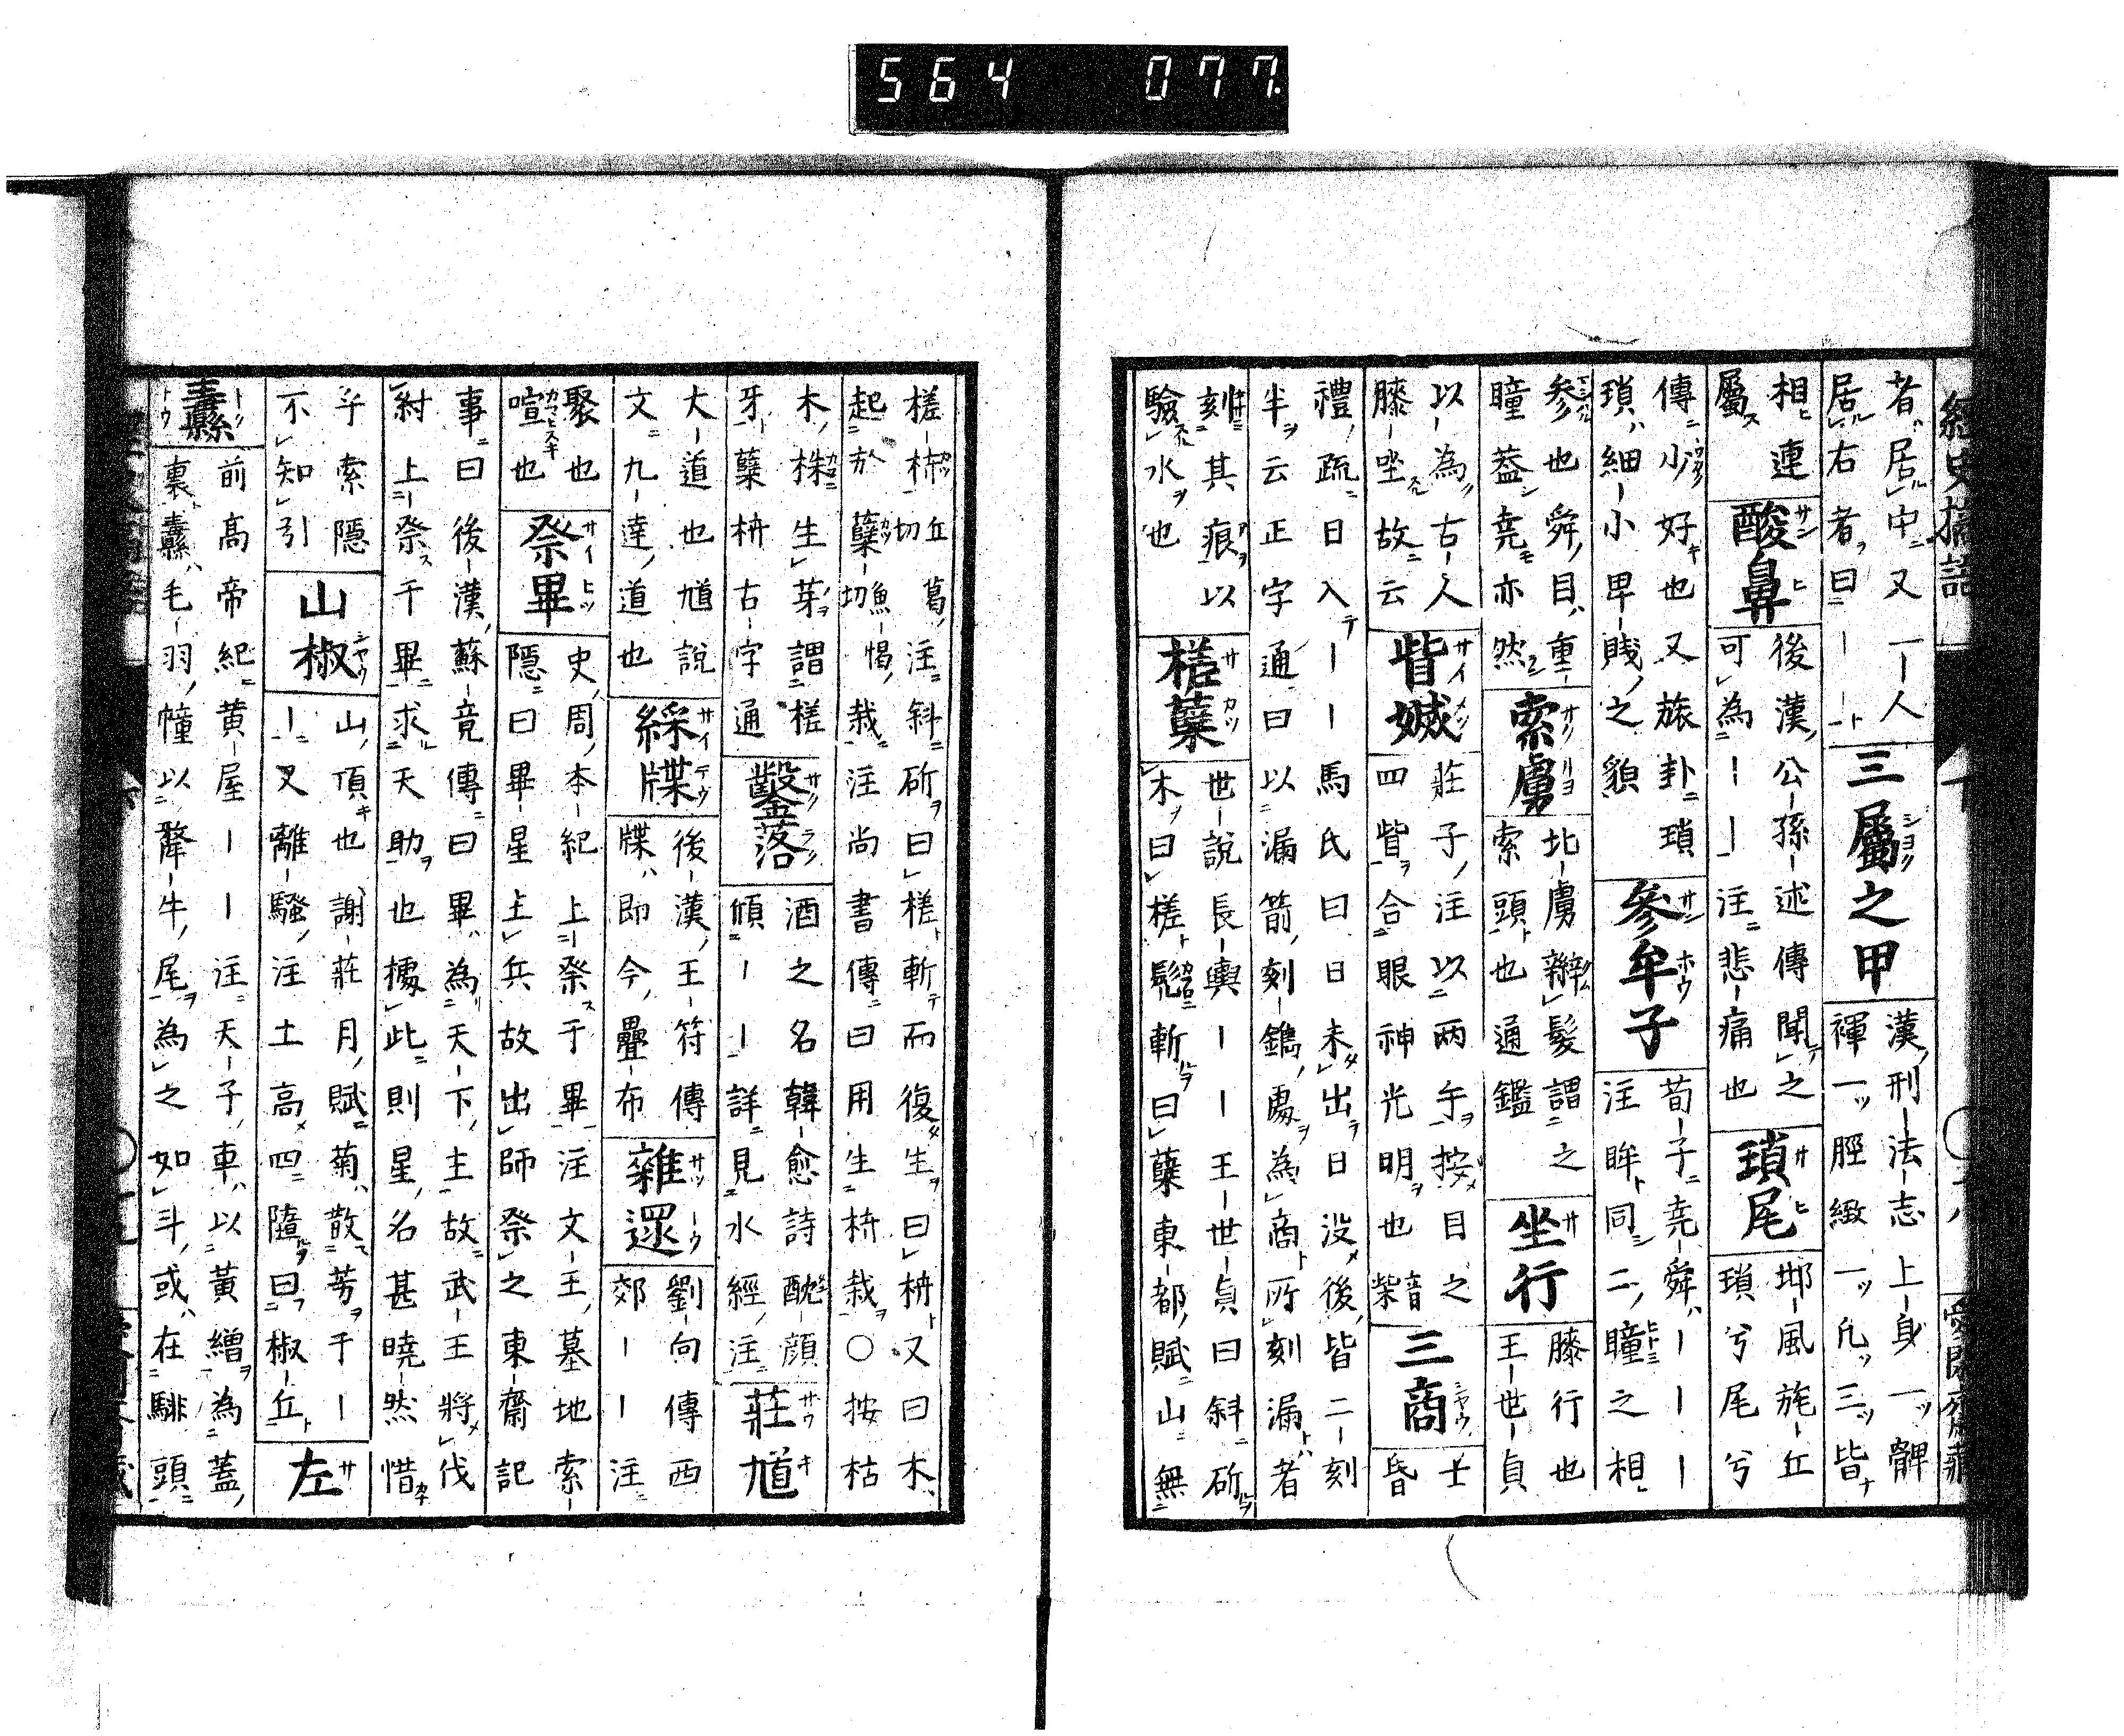 564 077.
者居中又一人
居右者曰｜｜
三屬之甲
漢刑法志上身一髀
褌一脛緻一凡三皆
相連
屬
酸鼻
後漢公孫述傳聞之
可為｜｜注悲痛也
瑣尾
邶風旄丘
瑣兮尾兮
傳小好也又旅卦瑣
瑣細小卑賤之貌
參牟子
荀子堯舜｜｜｜
注眸同二瞳之相
参也舜目重
瞳蓋堯亦然
索虜
北虜辮髮謂之
索頭也通鑑
坐行
膝行也
王世貞
以為古人
膝坐故云
眥媙
莊子注以兩手按目之
四眥合眼神光明也
眥音柴
三商
士
昏
禮疏日入｜｜馬氏曰日未出日没後皆二刻
半云正字通曰以漏箭刻鐫處為商所刻漏者
刻其痕以
驗水也
槎蘖
世說長輿｜｜王世貞曰斜斫
木曰槎髡斬曰蘖東都賦山無
槎枿枿丘葛切注斜斫曰槎斬而復生曰枿又曰木
起於蘖蘖魚惕切栽注尚書傳曰用生枿栽〇按枯
木株生芽謂槎
牙蘖枿古字通
鑿落
酒之名韓愈詩醜顏
傾｜｜詳見水經注
莊馗
大道也馗說
文九達道也
綵牒
後漢王符傳
牒即今疊布
雜遝
劉向傳西
郊｜｜注
聚也
喧也
祭畢
史周本紀上祭于畢注文王墓地索
隱曰畢星主兵故出師祭之東齋記
事曰後漢蘇竟傳曰畢為天下主故武王將伐
紂上祭于畢求天助也據此則星名甚曉然惜
乎索隱
不知引
山椒
山頂也謝莊月賦菊散芳于｜
｜又離騷注土高四墮曰椒丘
左
纛
前高帝紀黄屋｜｜注天子車以黄繒為蓋
裏纛毛羽幢以犛牛尾為之如斗或在騑頭